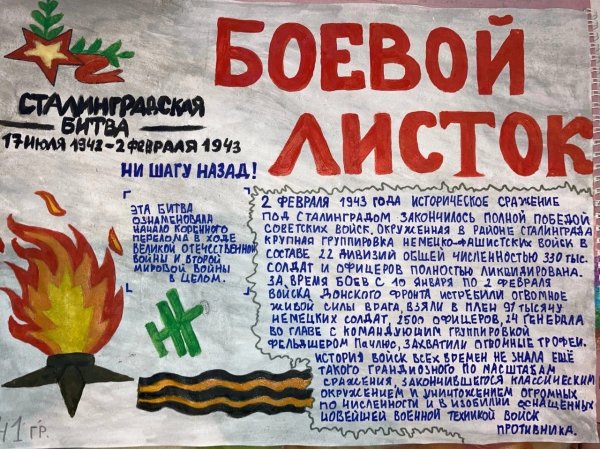 БОЕВОЙ
ЛИСТОК
СТАЛИНГРАДСКАЯ
БИТВА
17 ИЮЛЯ 1942-2 ФЕВРАЛЯ 1943
НИ ШАГУ НАЗАД!
ЭТА БИТВА
ОЗНАМЕНОВАЛА
НАЧАЛО КОРЕННОГО
ПЕРЕЛОМА В ХОДЕ
ВЕЛИКОЙ ОТЕЧЕСТВЕННОЙ
ВОЙНЫ И ВТОРОЙ
МИРОВОЙ ВОЙНЫ
В ЦЕЛОМ.
2 ФЕВРАЛЯ 1943 ГОДА ИСТОРИЧЕСКОЕ СРАЖЕНИЕ
ПОД СТАЛИНГРАДОМ ЗАКОНЧИЛОСЬ ПОЛНОЙ ПОБЕДОЙ
СОВЕТСКИХ ВОЙСК, ОКРУЖЕННАЯ В РАЙОНЕ СТАЛИНГРАДА
КРУПНАЯ ГРУППИРОВКА НЕМЕЦКО-ФАШИСТСКИХ ВОЙСК В
СОСТАВЕ 22 ДИВИЗИЙ ОБЩЕЙ ЧИСЛЕННОСТЬЮ 330 ТЫС.
СОЛДАТ И ОФИЦЕРОВ ПОЛНОСТЬЮ ЛИКВИДИРОВАНА.
ЗА ВРЕМЯ БОЕВ С 10 ЯНВАРЯ ПО 2 ФЕВРАЛЯ
ВОЙСКА ДОНСКОГО ФРОНТА ИСТРЕБИЛИ ОГРОМНОЕ
ЖИВОЙ СИЛЫ ВРАГА, ВЗЯЛИ В ПЛЕН 91 ТЫСЯЧУ
НЕМЕЦКИХ СОЛДАТ, 2500 ОФИЦЕРОВ, 24 ГЕНЕРАЛА
ВО ГЛАВЕ С КОМАНДУЮЩИМ ГРУППИРОВКОЙ
ФЕЛЬДШЕРОМ ПАУЛЮ, ЗАХВАТИЛИ ОГРОМНЫЕ ТРОФЕИ.
ИСТОРИЯ ВОЙСК ВСЕХ ВРЕМЕН НЕ ЗНАЛА ЕЩЁ
ТАКОГО ГРАНДИОЗНОГО ПО МАСШТАБАМ
СРАЖЕНИЯ, ЗАКОНЧИВШЕГОСЯ КЛАССИЧЕСКИМ
ОКРУЖЕНИЕМ И УНИЧТОЖЕНИЕМ ОГРОМНЫХ
ПО ЧИСЛЕННОСТИ И В ИЗОБИЛИИ ОСНАЩЕННЫХ
НОВЕЙШЕЙ ВОЕННОЙ ТЕХНИКОЙ ВОЙСК
ПРОТИВНИКА.
41 ГР.